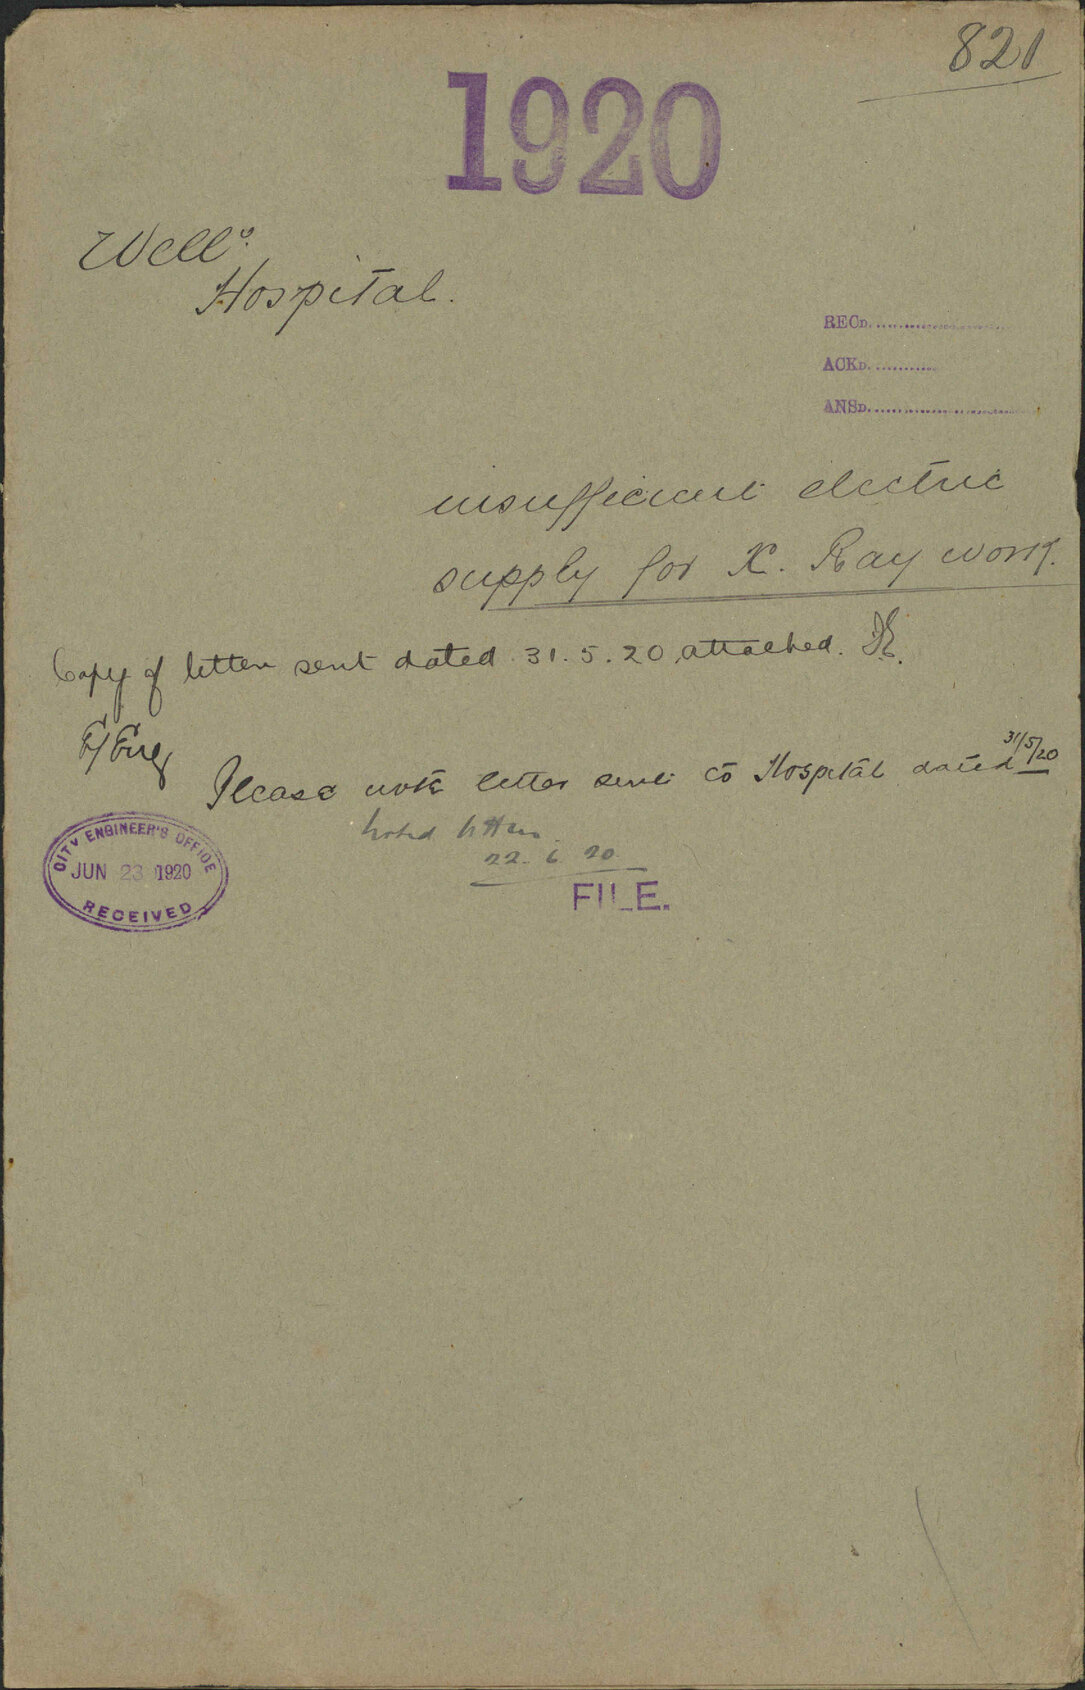 821
1920
Well°.
Hospital.
RECD.
ACKD.
ANSD.
insufficient electric
supply for X. Ray work.
Copy of letter sent dated 31.5.20 attached.
E/Eng
Please note letter sent to Hospital dated 31/5/20
Noted
22. 6 20
CITY ENGINEER'S OFFICE
JUN 23 1920
RECEIVED
FILE.